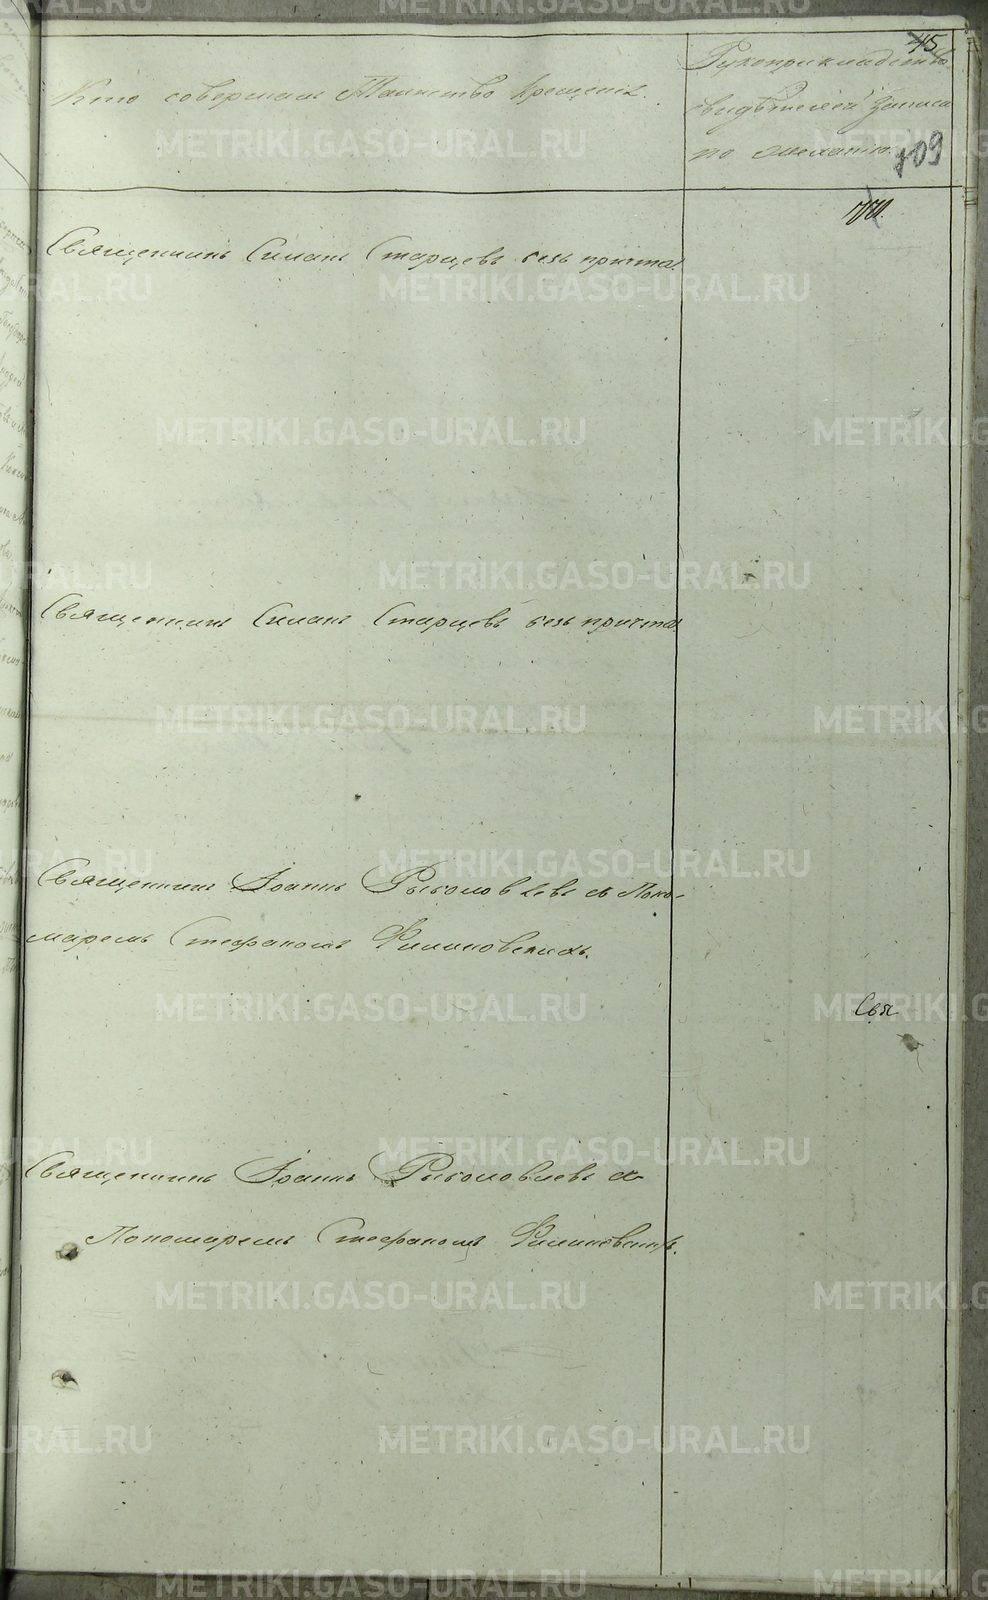 45
Кто совершалъ Таинство крещенія.
Рукоприкладство
свидѣтелей записи
по желанію.
109
Священникъ Симонъ Старцевъ безъ причта.
Священникъ Симонъ Старцевъ безъ причта.
Священникъ Іоаннъ Рыболовлевъ съ Поно-
маремъ Стефаномъ
Свя
Священникъ Іоаннъ Рыболовлевъ съ
Пономаремъ Стефаномъ
METRIKI.GASO-URAL.RU